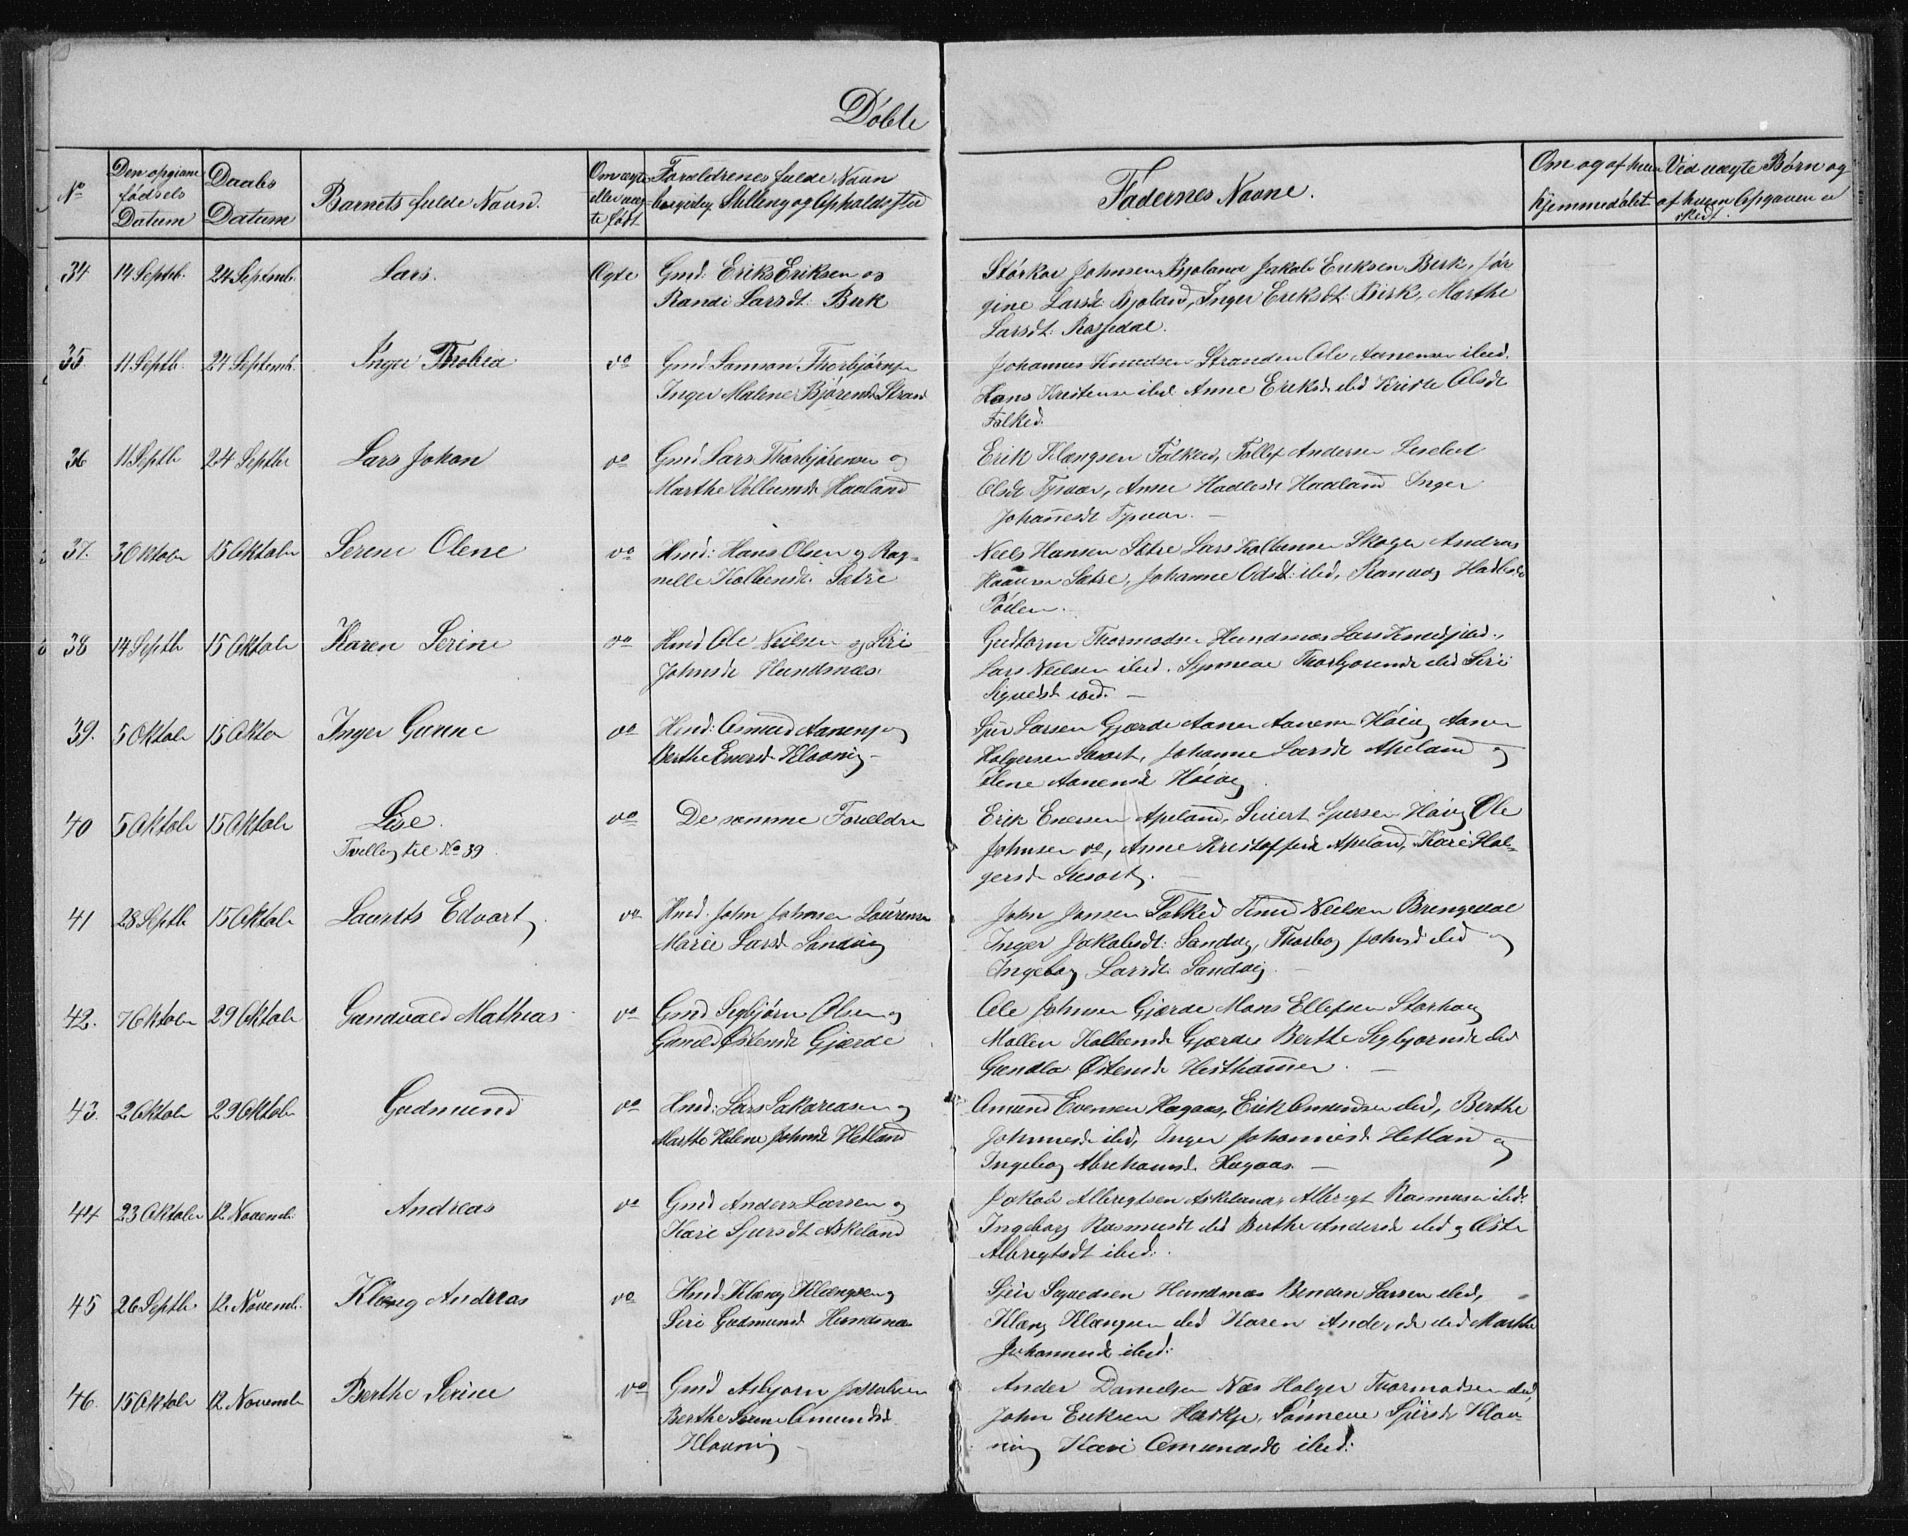 Døbte
No
Den opgivne fødsels Datum
Daabs Datum
Barnets fulde Navn.
Om ægte eller uægte født
Forældrenes fulde Navn borgerlig Stilling og Opholdssted
Faddernes Navne.
Om og af hvem hjemmedøbt
Ved uægte Børn og af hvem Opgaven er skedt.
34 14 Septb. 24 Septemb. Lars. Ægte Gmd: Eriks Eriksen og
Randi Larsdt. Birk
Størkor Johnsen Bjoland Jakob Eriksen Birk, Jør
gine Larsd. Bjoland, Inger Eriksdt: Birk, Marthe
Larsdt:
35. 11 Septb. 24 Septemb. Inger Thobia do Gmd Samson Thorbjørns
Inger Malene Bjørensd Strand
Johannes Knudsen Stranden Ole Aanensen ibid.
Hans Kristensen ibid Anne Eriksd ibid Kirste Olsdt
Falked.
36 11 Septb 24 Septbr Lars Johan do Gmd Lars Thorbjørnsen og
Marthe Villumsd Haaland
Erik Klængsen Falked, Tollef Andersen Lisebet
Olsdt Tysvær, Anne Hadlesd Haaland Inger
Johanesdt Tysvær. —
37. 3 Oktobr 15 Oktobr Serene Olene do Hmd: Hans Olsen og Rag-
nelle Kolbensdt. Sætre
Neels Hansen Sætre Lars Kolbensen Skoger Andreas
Haavsen Sætre, Johanne Odsdt: ibid, Ranveg Hadlesd
38 14 Septb 15 Oktobr Karen Serine do Hmd Ole Nielsen og Siri
Johnsd Hundsnæs.
Gudtorm Thormodsen Hundsnæs Lars Knudsen ibid.,
Lars Nielsen ibid. Synneve Thorbjørnsd ibid Siri
Siguedsd ibid. —
39. 5 Oktobr 15 Oktor Inger Gurine do Hmd: Osmud Aanensen og
Berthe Enersd Klovnig —
Sjur Larsen Gjærde Aanen Aanensen Høivig Aanen
Holgersen Susort, Johanne Larsdt Apeland og
Elene Aanensd Høivig
40 5 Oktobr 15 Oktobr Lise. do De samme Forældre
Tvilling til No 39.
Erik Enersen Apeland, Sivert Sjursen Høivig Ole
Johnsen do, Anne Kristoffersd Apeland, Kari Hol-
gersd Susort. —
41 28 Septb 15 Oktobr Laurits Edvart do Hmd. John Johnsen Laurense
Marie Larsd Sandvig
John Jonsen Falked Neelsen Brengedal
Inger Jakobsdt: Sandvig, Thorbor Johnsd ibid og
Ingeborg Larsdt Sandvig. —
42. 7 Oktobr 29 Oktobr Gundvald Mathias do Gmd Segbjørn Olsen og
Gunild Østensd Gjærde
Ole Johnsen Gjærde Mons Ellefsen Storhoug
Mallen Kolbensd Gjærde Berthe Segbjørnsd ibid
Gundla Østensd Hesthammer. —
43. 2 Oktobr 29 Oktobr Gudmund do Hmd: Lars Sakariasen og
Marthe Helene Johnsd Hetland
Omund Evensen Hagaas, Erik Omundsen ibid, Berthe
Johnnesd ibid, Inger Johannesd Hetland og
Ingebog Abrehamsd Hagaas. —
44 23 Oktober 12 Novemb. Andreas do Gmd Anders Larsen og
Kari Sjursdt Askeland
Jakob Albregtsen Askeland Albregt Rasmusen ibid.
Ingeborg Rasmusdt ibid Berthe Andersd ibid og Oste
Albregtsdt ibid:
45 26 Septb. 12 Novemb. Klæng Andreas do Hmd. Klæng Klængsen og
Siri Gudmunds Hundsnæs
Sjur Siguedsen Hundsnæs Benden Larsen ibid,
Klæng Klængsen ibid Karen Andersd ibid Marthe
Johannesd ibid:
46. 15 Oktobr 12 Novemb Berthe Serine do Gmd Asbjørn Jakobsen
Berthe Serine Omundsd.
Klovning —
Ander Danielsen Næs Holger Thormodsen ibid,
John Eriksen Sønneve Sjursd Klov-
ning Kari Omundsdt ibid: